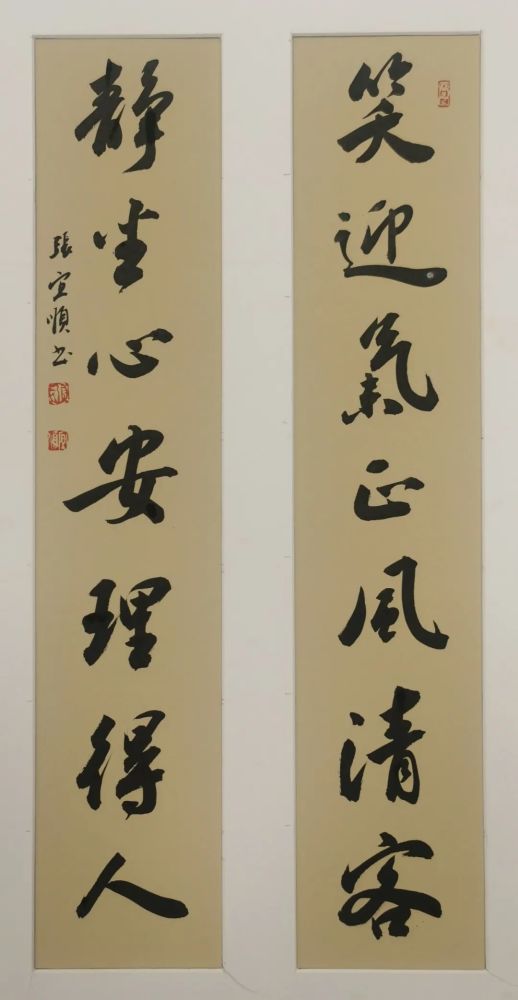 笑迎氣正風清客
靜坐心安理得人
張宜順书